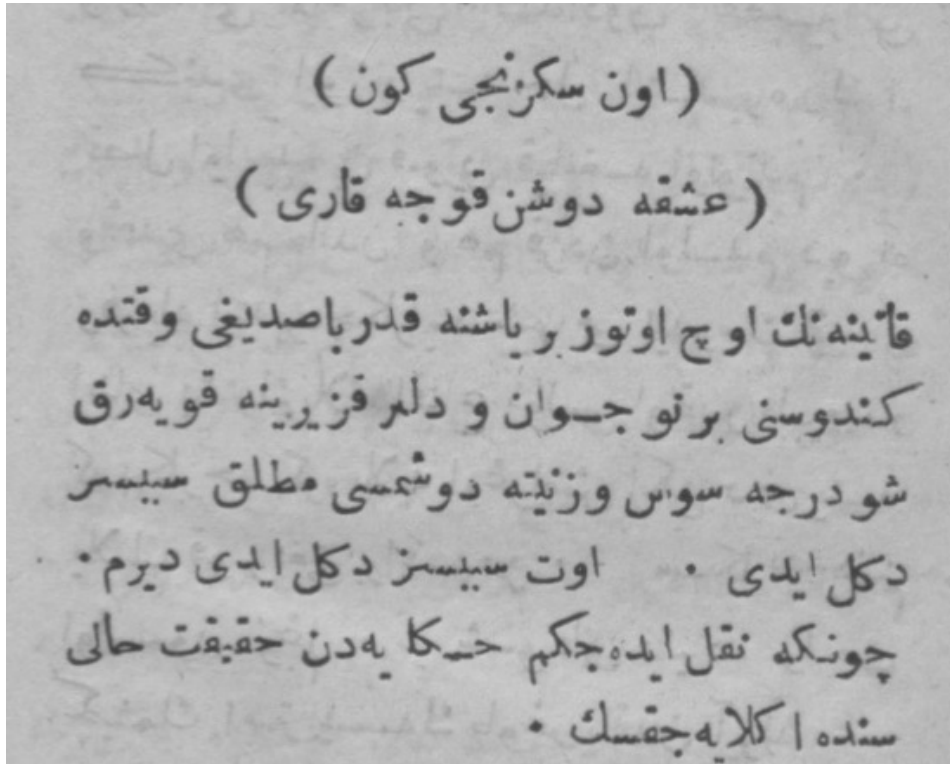 (اون سكزنجی كون)
(عشقه دوشن قوجه قاری)
قاتینه نك اوچ اوتوز بر یاشنه قدر باصدیغی وقتده
كندوسنی بر نو جوان و دلبر قز یرینه قویه‌رق
شو درجه سوس وزینته دوشمسی مطلق سببسز
دكل ایدی ۰ اوت سببسز دكل ایدی دیرم ۰
چونكه نقل ایده‌جكم حكایه‌دن حقیقت حالی
سنده اكلایه‌جقسك ۰